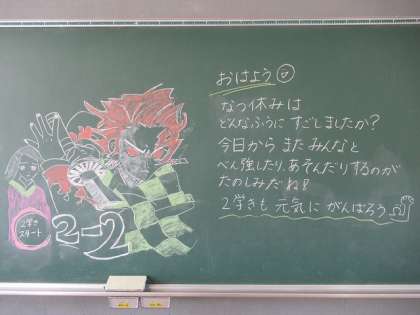 おはよう
なつ休みは
どんなふうに すごしましたか?
今日から また みんなと
べん強したり、あそんだりするのが
たのしみだね!
2学きも 元気に がんばろう
2学き
スタート
2-2